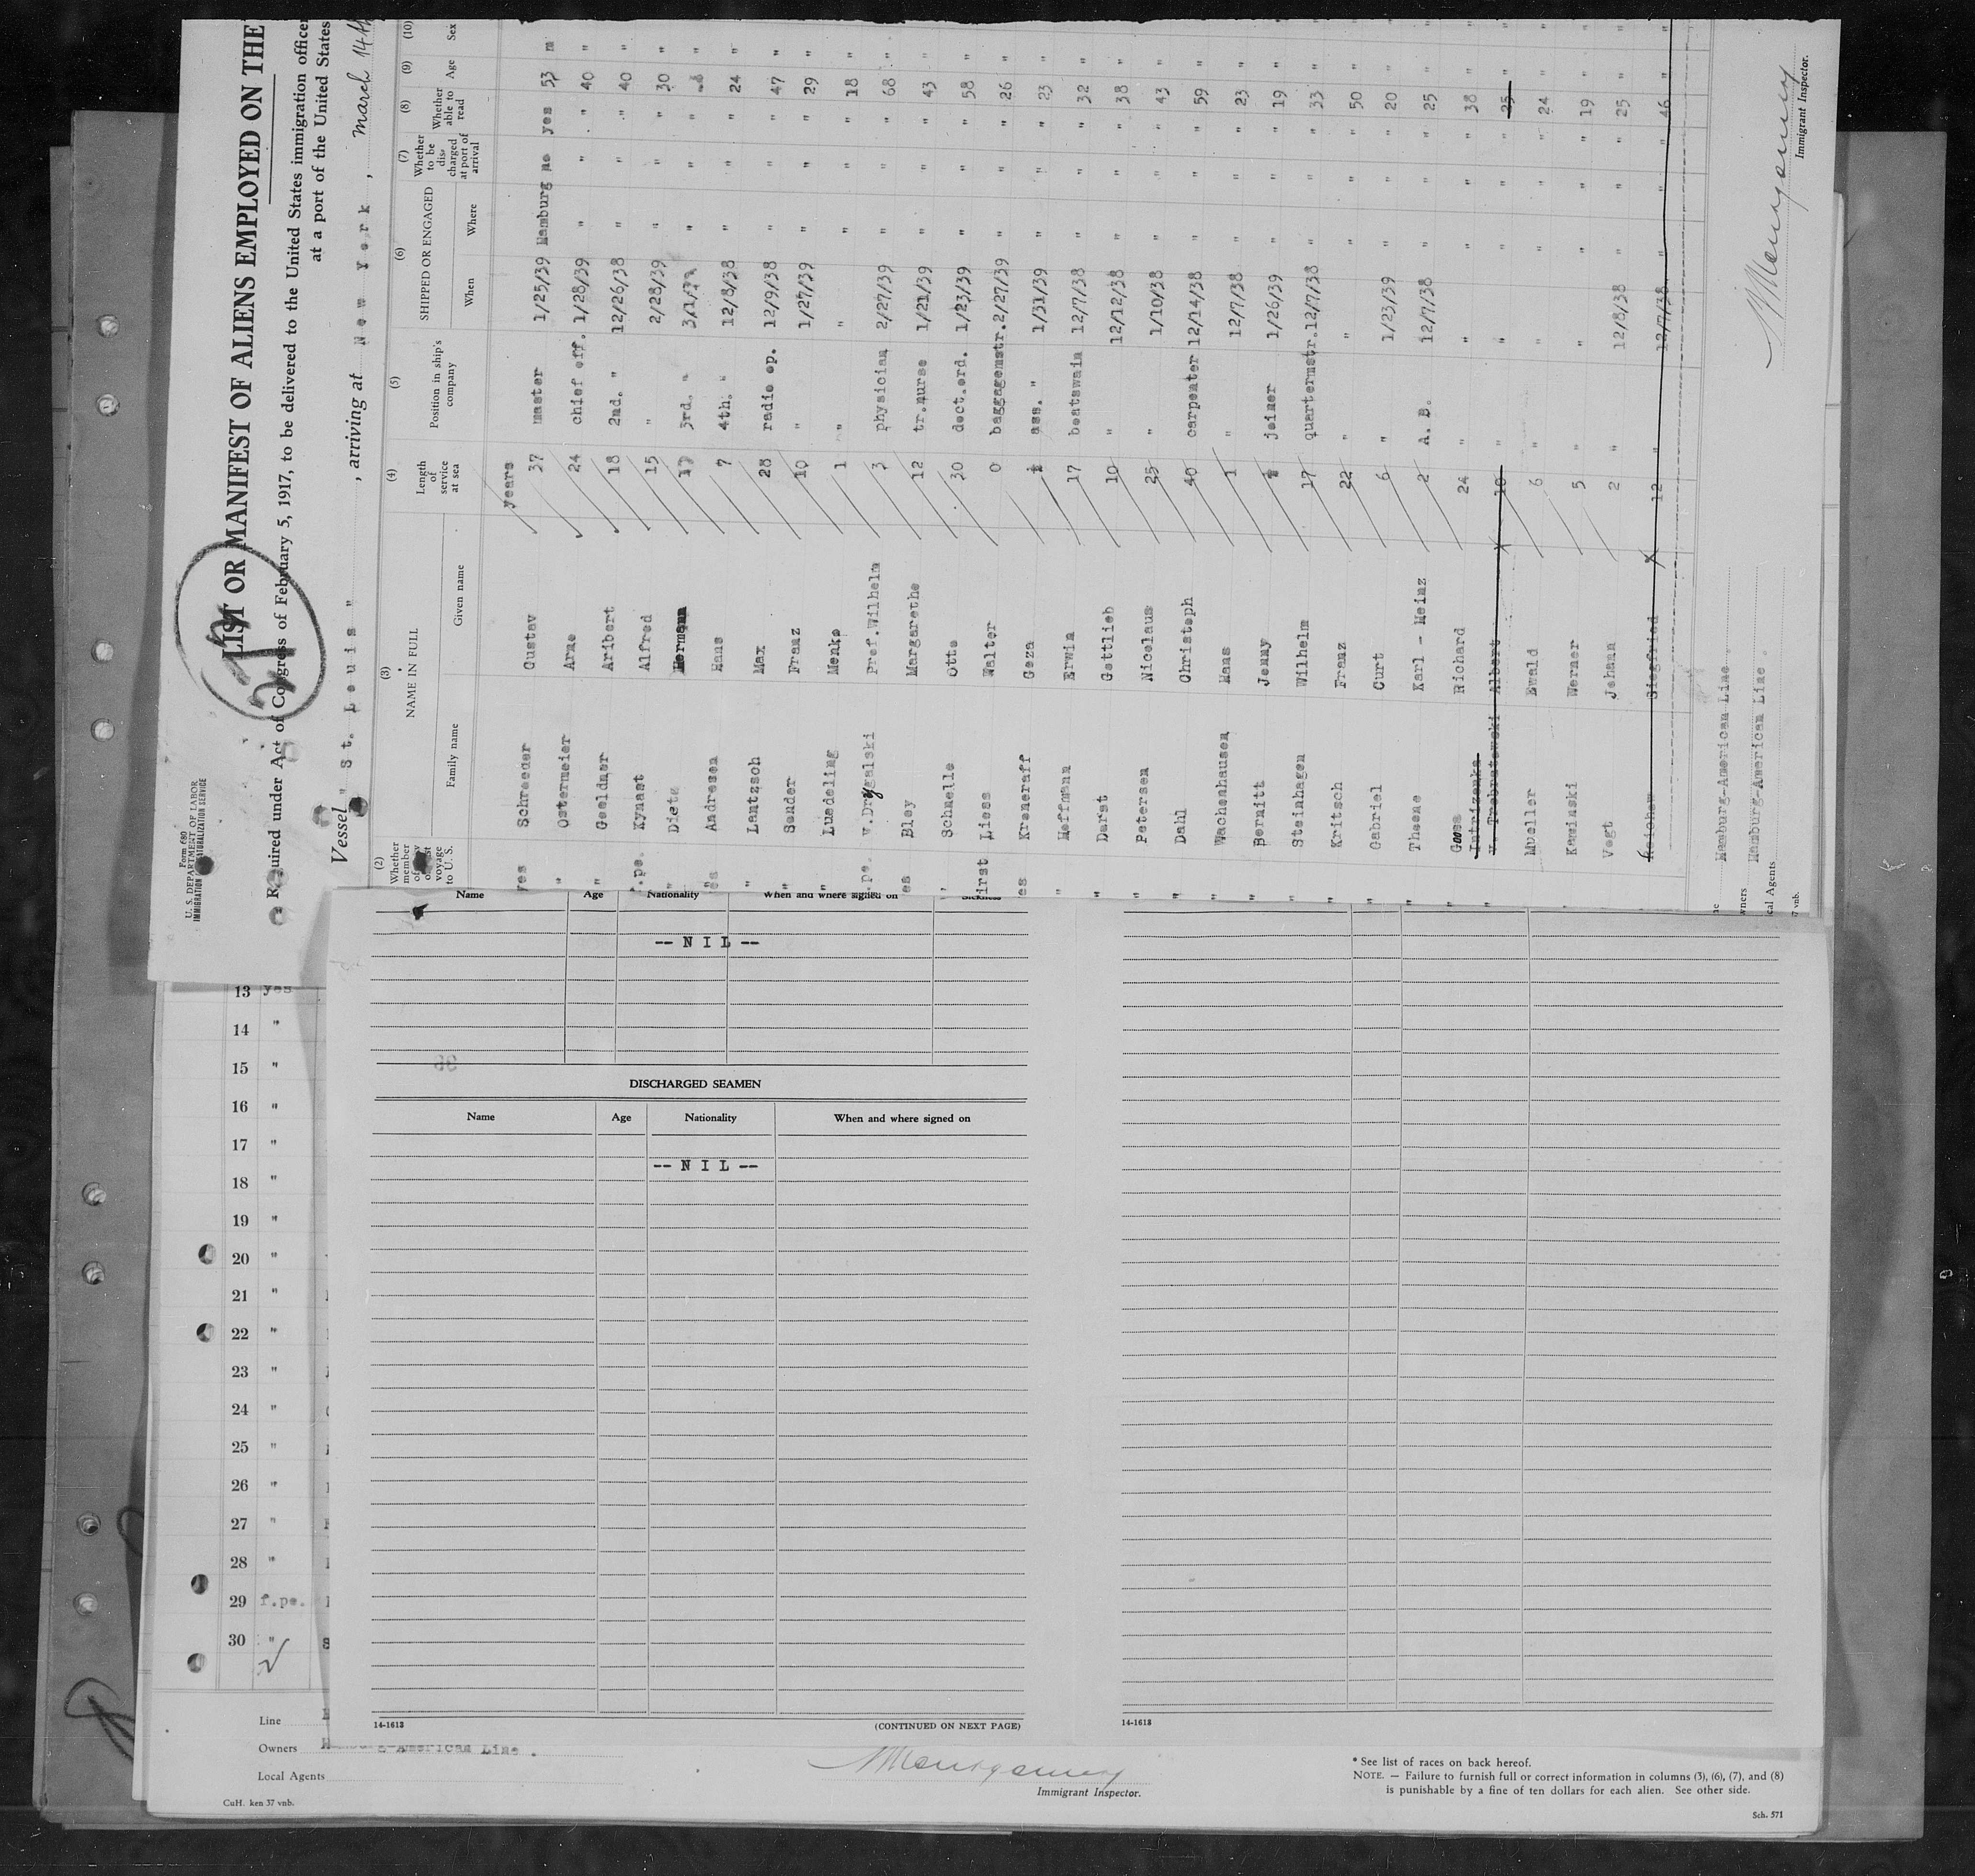 U. S. DEPARTMENT OF LABOR
IMMIGRATION NATURALIZATION SERVICE
Form 680
LIST OR MANIFEST OF ALIENS EMPLOYED ON THE
Required under Act of Congress of February 5, 1917, to be delivered to the United States immigration officer
at a port of the United States
Vessel " St. Louis " , arriving at New York , march 14th
(2) (3) (4) (5) (6) (7) (8) (9) (10)
Whether member of voyage to U. S. NAME IN FULL Length of service at sea Position in ship's company SHIPPED OR ENGAGED Whether to be discharged at port of arrival Whether able to read Age Sex
Family name Given name When Where
years
yes Schroeder Gustav 37 master 1/25/39 Hamburg no yes 53 m
" Ostermeier Arne 24 chief off. 1/28/39 " " " 40 "
" Geeldner Aribert 18 2nd. " 12/26/38 " " " 40 "
.pe. Kynast Alfred 15 " 2/28/39 " " " 30 "
" Dietz Hermann 3rd. " " " " "
es Andresen Hans 7 4th. " 12/8/38 " " " 24 "
" Lantzsch Max 28 radio op. 12/9/38 " " " 47 "
" Sender Franz 10 " 1/27/39 " " " 29 "
" Luedeling Menko 1 " " " " " 18 "
.pe. v.Drygalski Prof.Wilhelm 3 physician 2/27/39 " " " 68 "
es Bley Margarethe 12 tr.nurse 1/21/39 " " " 43 "
" Schnelle Otto 30 doct.ord. 1/23/39 " " " 58 "
irst Liess Walter 0 baggagemstr. 2/27/39 " " " 26 "
es Kroneraff Geza 1 ass. " 1/31/39 " " " 23 "
" Hoffmann Erwin 17 boatswain 12/7/38 " " " 32 "
" Darst Gottlieb 10 " 12/12/38 " " " 38 "
" Petersen Nicolaus 25 " 1/10/38 " " " 43 "
" Dahl Christoph 40 carpenter 12/14/38 " " " 59 "
" Wachenhausen Hans 1 " 12/7/38 " " " 23 "
" Bernitt Jonny joiner 1/26/39 " " " 19 "
" Steinhagen Wilhelm 17 quartermstr. 12/7/38 " " " 33 "
" Kritsch Franz 22 " " " " " 50 "
" Gabriel Curt 6 " 1/23/39 " " " 20 "
" Theene Karl - Heinz 2 A. B. 12/7/38 " " " 25 "
" Goosa Richard 24 " " " " " 38 "
" v. Trebratowski Albert 10 " " " " " 25 "
Mueller Ewald 6 " " " " " 24 "
Kaminski Werner 5 " " " " " 19 "
Vogt Johann 2 " 12/8/38 " " " 25 "
Reichow Siegfried 12 " 12/7/38 " " " 46 "
Hamburg-American Line .
Owners Hamburg-American Line .
Local Agents
37 vnb.
Montgomery
Immigrant Inspector.
Name Age Nationality When and where signed on Sickness
-- N I L --
DISCHARGED SEAMEN
Name Age Nationality When and where signed on
-- N I L --
14-1613 (CONTINUED ON NEXT PAGE)
14-1613
13 yes
14 "
15 "
16 "
17 "
18 "
19 "
20 "
21 "
22 "
23 "
24 "
25 "
26 "
27 "
28 "
29 f.pe.
30 "
Line
Owners Hamburg-American Line .
Local Agents
CuH. ken 37 vnb.
Montgomery
Immigrant Inspector.
* See list of races on back hereof.
NOTE. — Failure to furnish full or correct information in columns (3), (6), (7), and (8)
is punishable by a fine of ten dollars for each alien. See other side.
Sch. 571